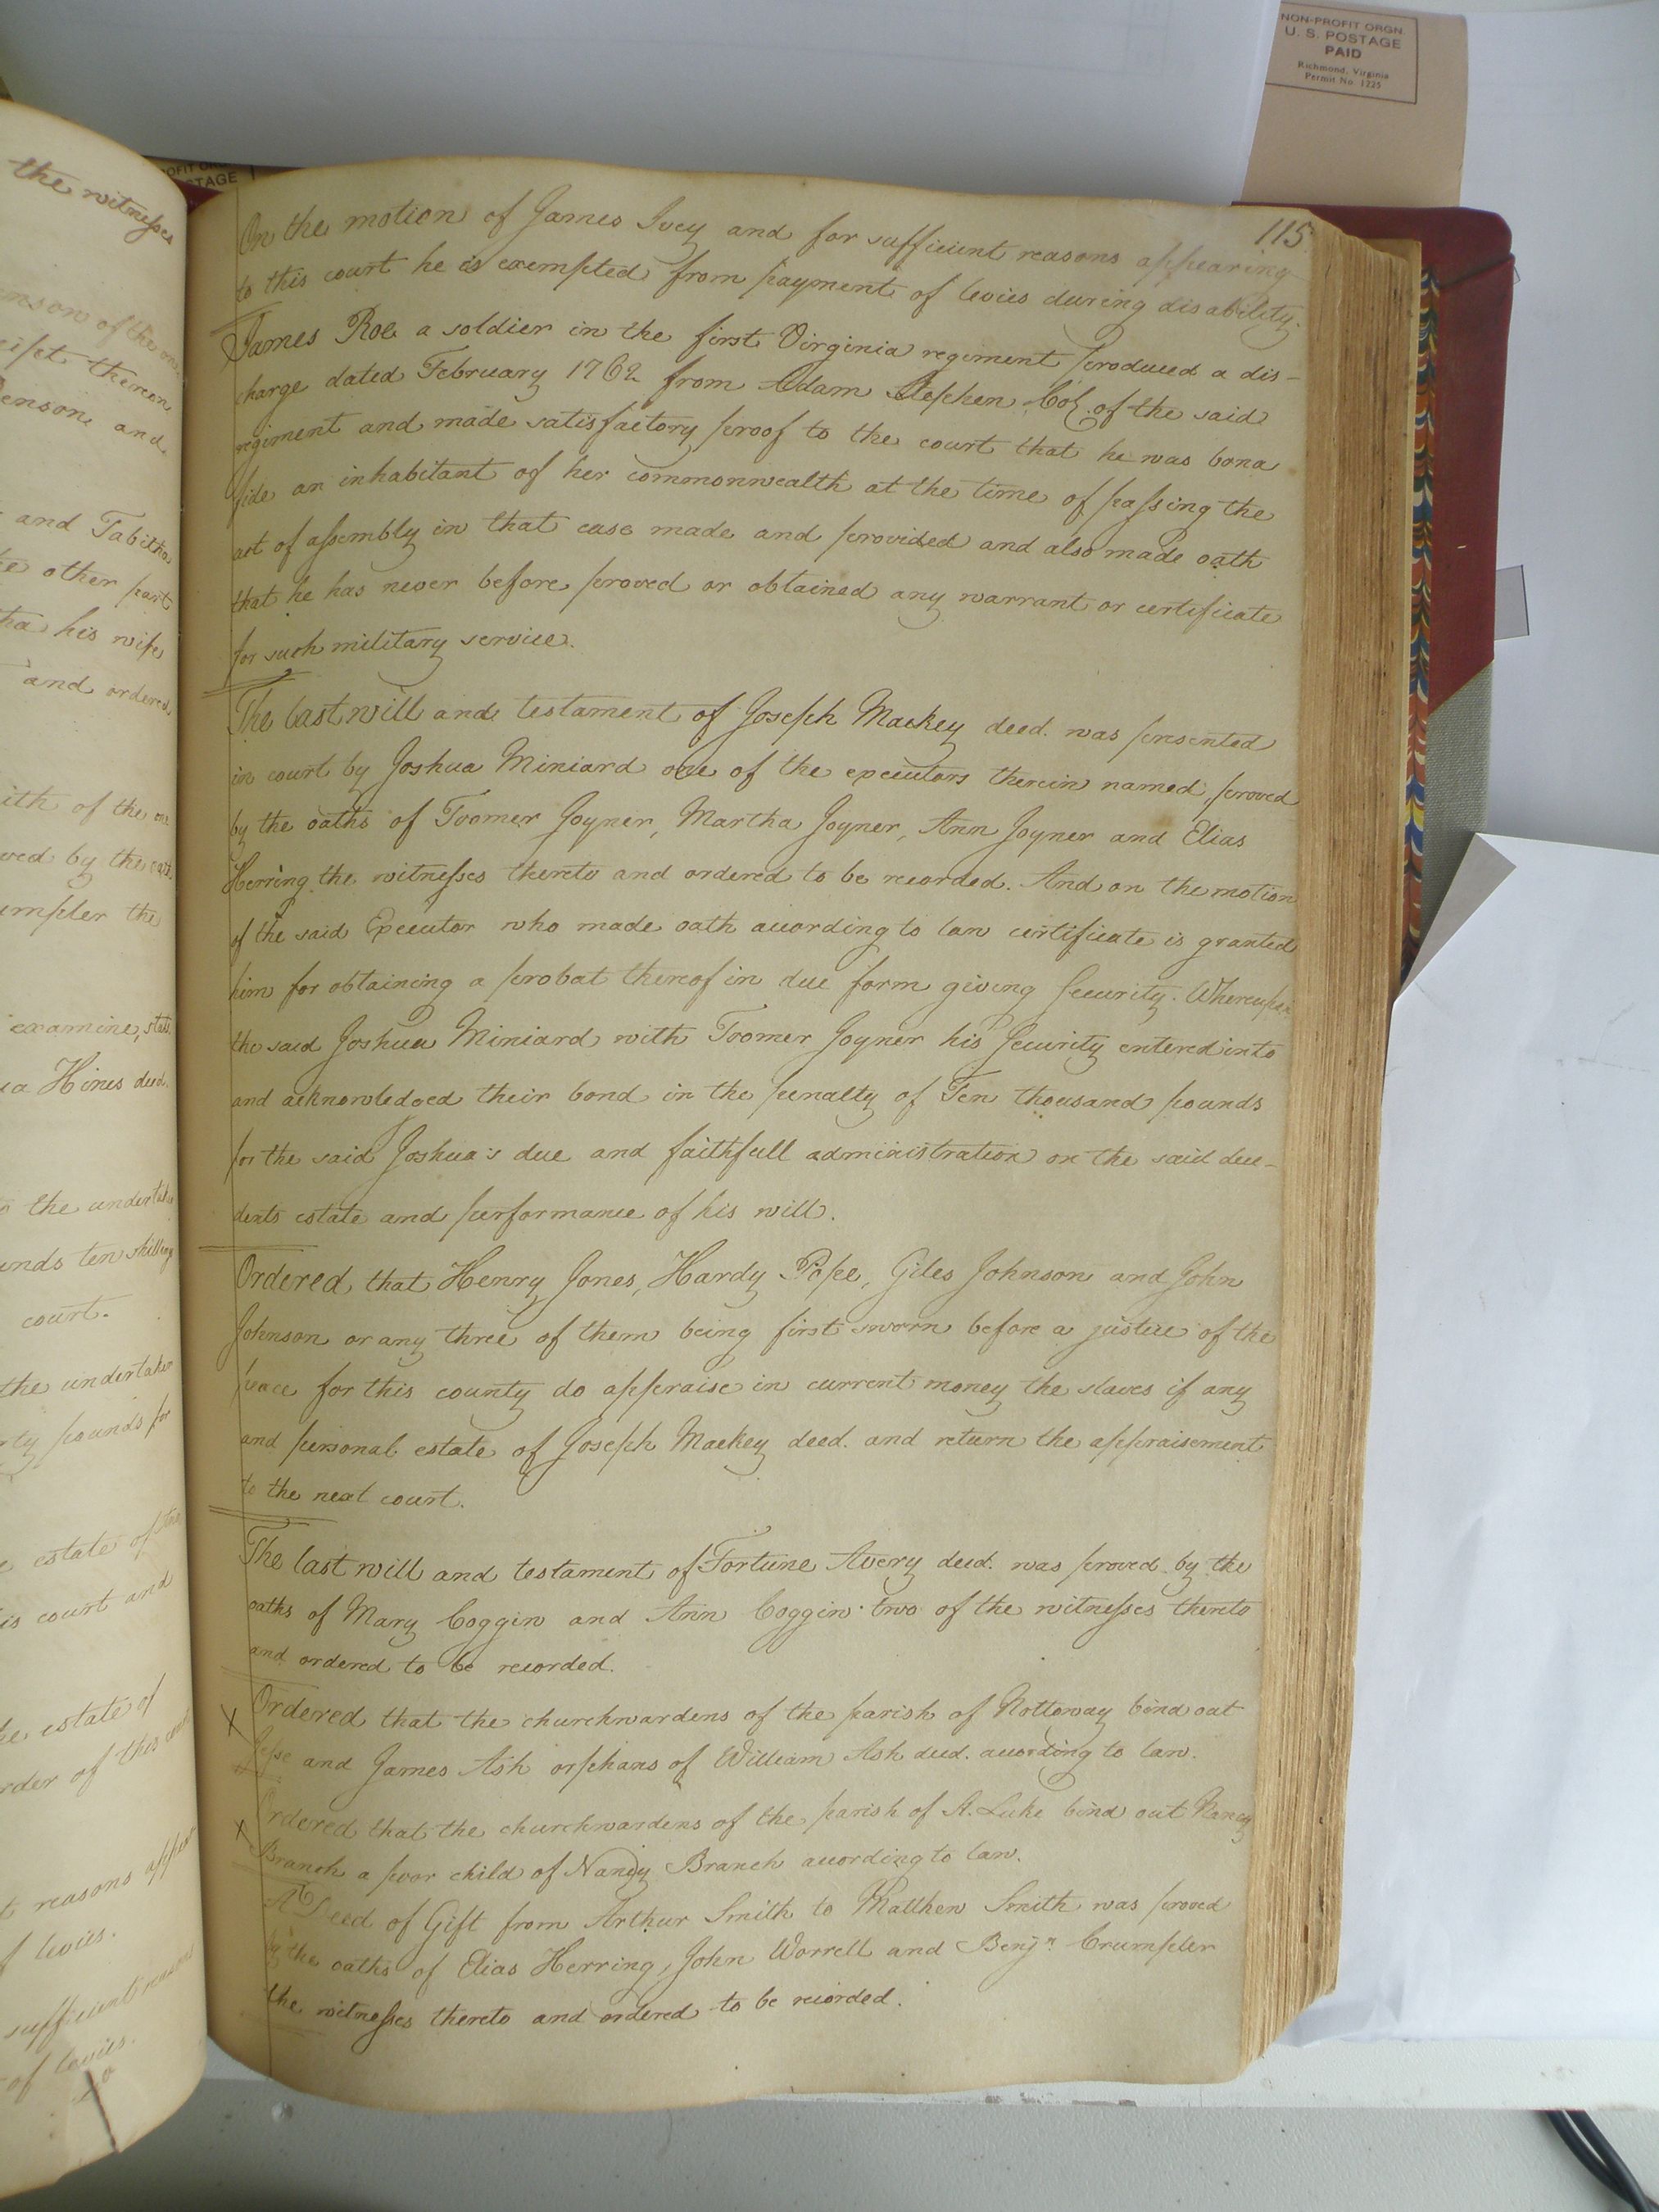 NON-PROFIT ORGN.
U. S. POSTAGE
PAID
Richmond, Virginia
Permit No. 1225
OFIT ORG
STAGE
the witnesses
of the one
thereon
and
and Tabitha
other part
his wife
and ordered
ith of the one
by the oath
the
examine, state
Hines deed.
the undertaker
ten shillings
court.
the undertaker
pounds for
estate of
is court and
estate of
order of this court
reasons appear
f levies.
sufficient reasons
of levies.
115
On the motion of James Ivey and for sufficient reasons appearing
to this court he is exempted from payment of levies during disability.
James Roe a soldier in the first Virginia regiment produced a dis-
charge dated February 1762 from Adam Stephen Col. of the said
regiment and made satisfactory proof to the court that he was bona
fide an inhabitant of her commonwealth at the time of passing the
act of assembly in that case made and provided and also made oath
that he has never before proved or obtained any warrant or certificate
for such military service.
The last will and testament of Joseph Mackey deed. was presented
in court by Joshua Miniard one of the executors therein named, proved
by the oaths of Toomer Joyner, Martha Joyner, Ann Joyner and Elias
Herring the witnesses thereto and ordered to be recorded. And on the motion
of the said Executor who made oath according to law certificate is granted
him for obtaining a probat thereof in due form giving Security. Whereupon
the said Joshua Miniard with Toomer Joyner his Security entered into
and acknowledged their bond in the penalty of Ten thousand pounds
for the said Joshua's due and faithfull administration on the said dece-
dents estate and performance of his will.
Ordered, that Henry Jones, Hardy Pope, Giles Johnson and John
Johnson or any three of them being first sworn before a justice of the
peace for this county do appraise in current money the slaves if any
and personal estate of Joseph Mackey deed. and return the appraisement
to the next court.
The last will and testament of Fortune Avery deed. was proved by the
oaths of Mary Coggin and Ann Coggin two of the witnesses thereto
and ordered to be recorded.
X Ordered that the churchwardens of the parish of Nottoway bind out
Jesse and James Ash orphans of William Ash deed. according to law.
X Ordered that the churchwardens of the parish of St. Luke bind out Nancy
Branch a poor child of Nancy Branch according to law.
A Deed of Gift from Arthur Smith to Matthew Smith was proved
by the oaths of Elias Herring, John Worrell and Benjn Crumpler
the witnesses thereto and ordered to be recorded.